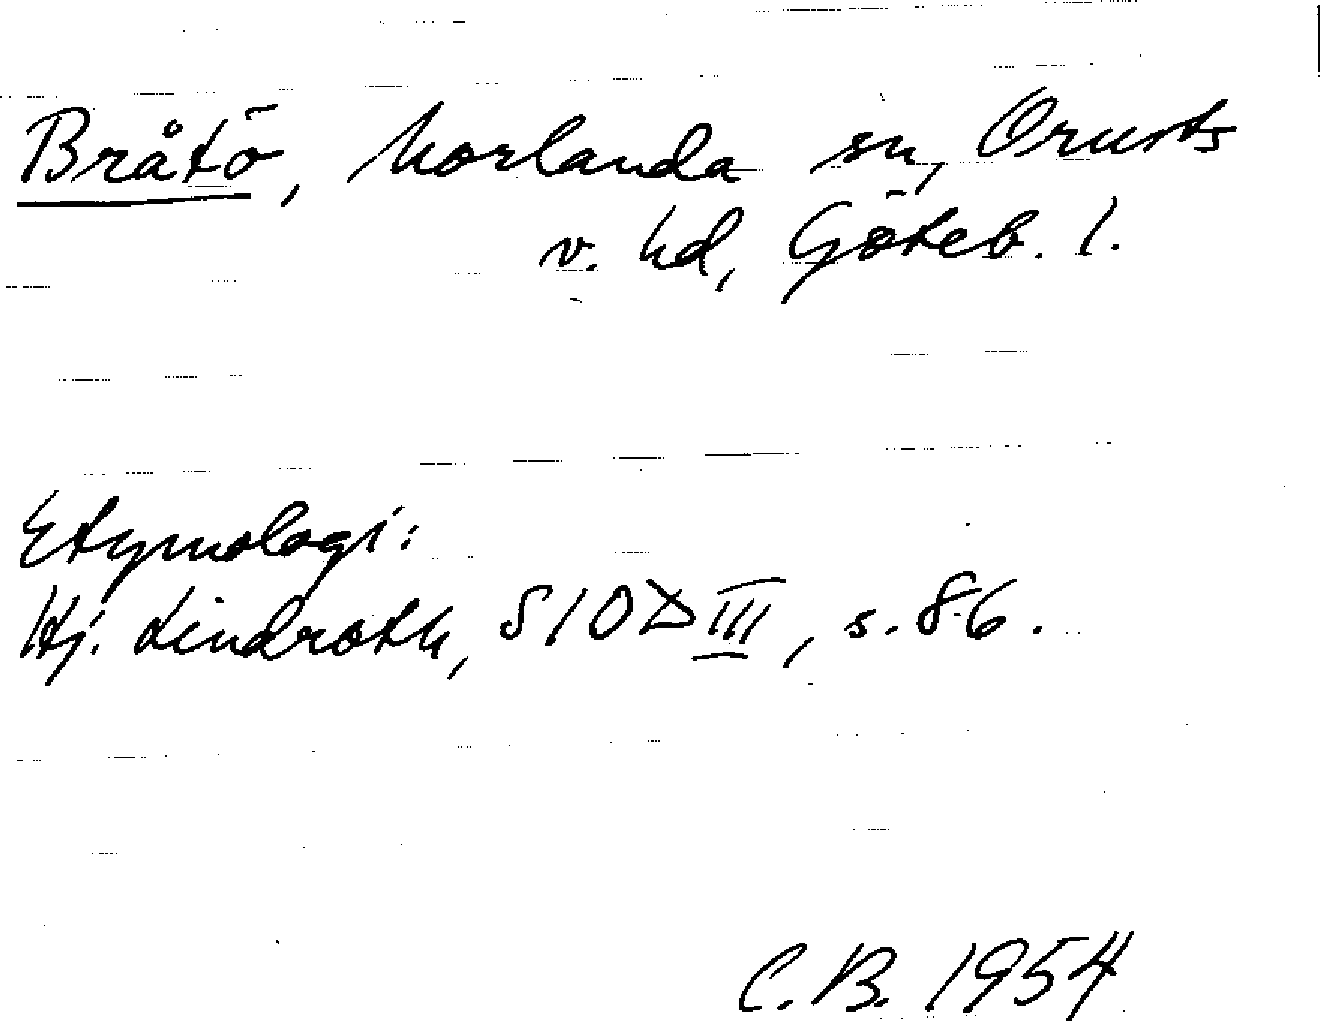 Bråtö, Morlanda sn, Orusts
v. hd, Göteb. l.
Etymologi:
Hj. Lindroth, SIOD III, s. 86.
C.B. 1954